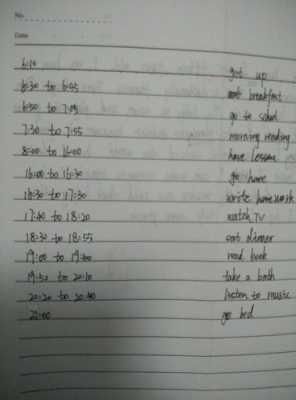 No.
Date
6:10 get up
6:30 to 6:55 eat breakfast
6:50 to 7:05 go to school
7:30 to 7:55 morning reading
8:00 to 16:00 have lessons
16:00 to 16:30 go home
16:30 to 17:30 write homework
17:40 to 18:20 watch TV
18:30 to 18:55 eat dinner
19:00 to 19:40 read book
19:50 to 20:10 take a bath
20:20 to 20:40 listen to music
21:00 go bed